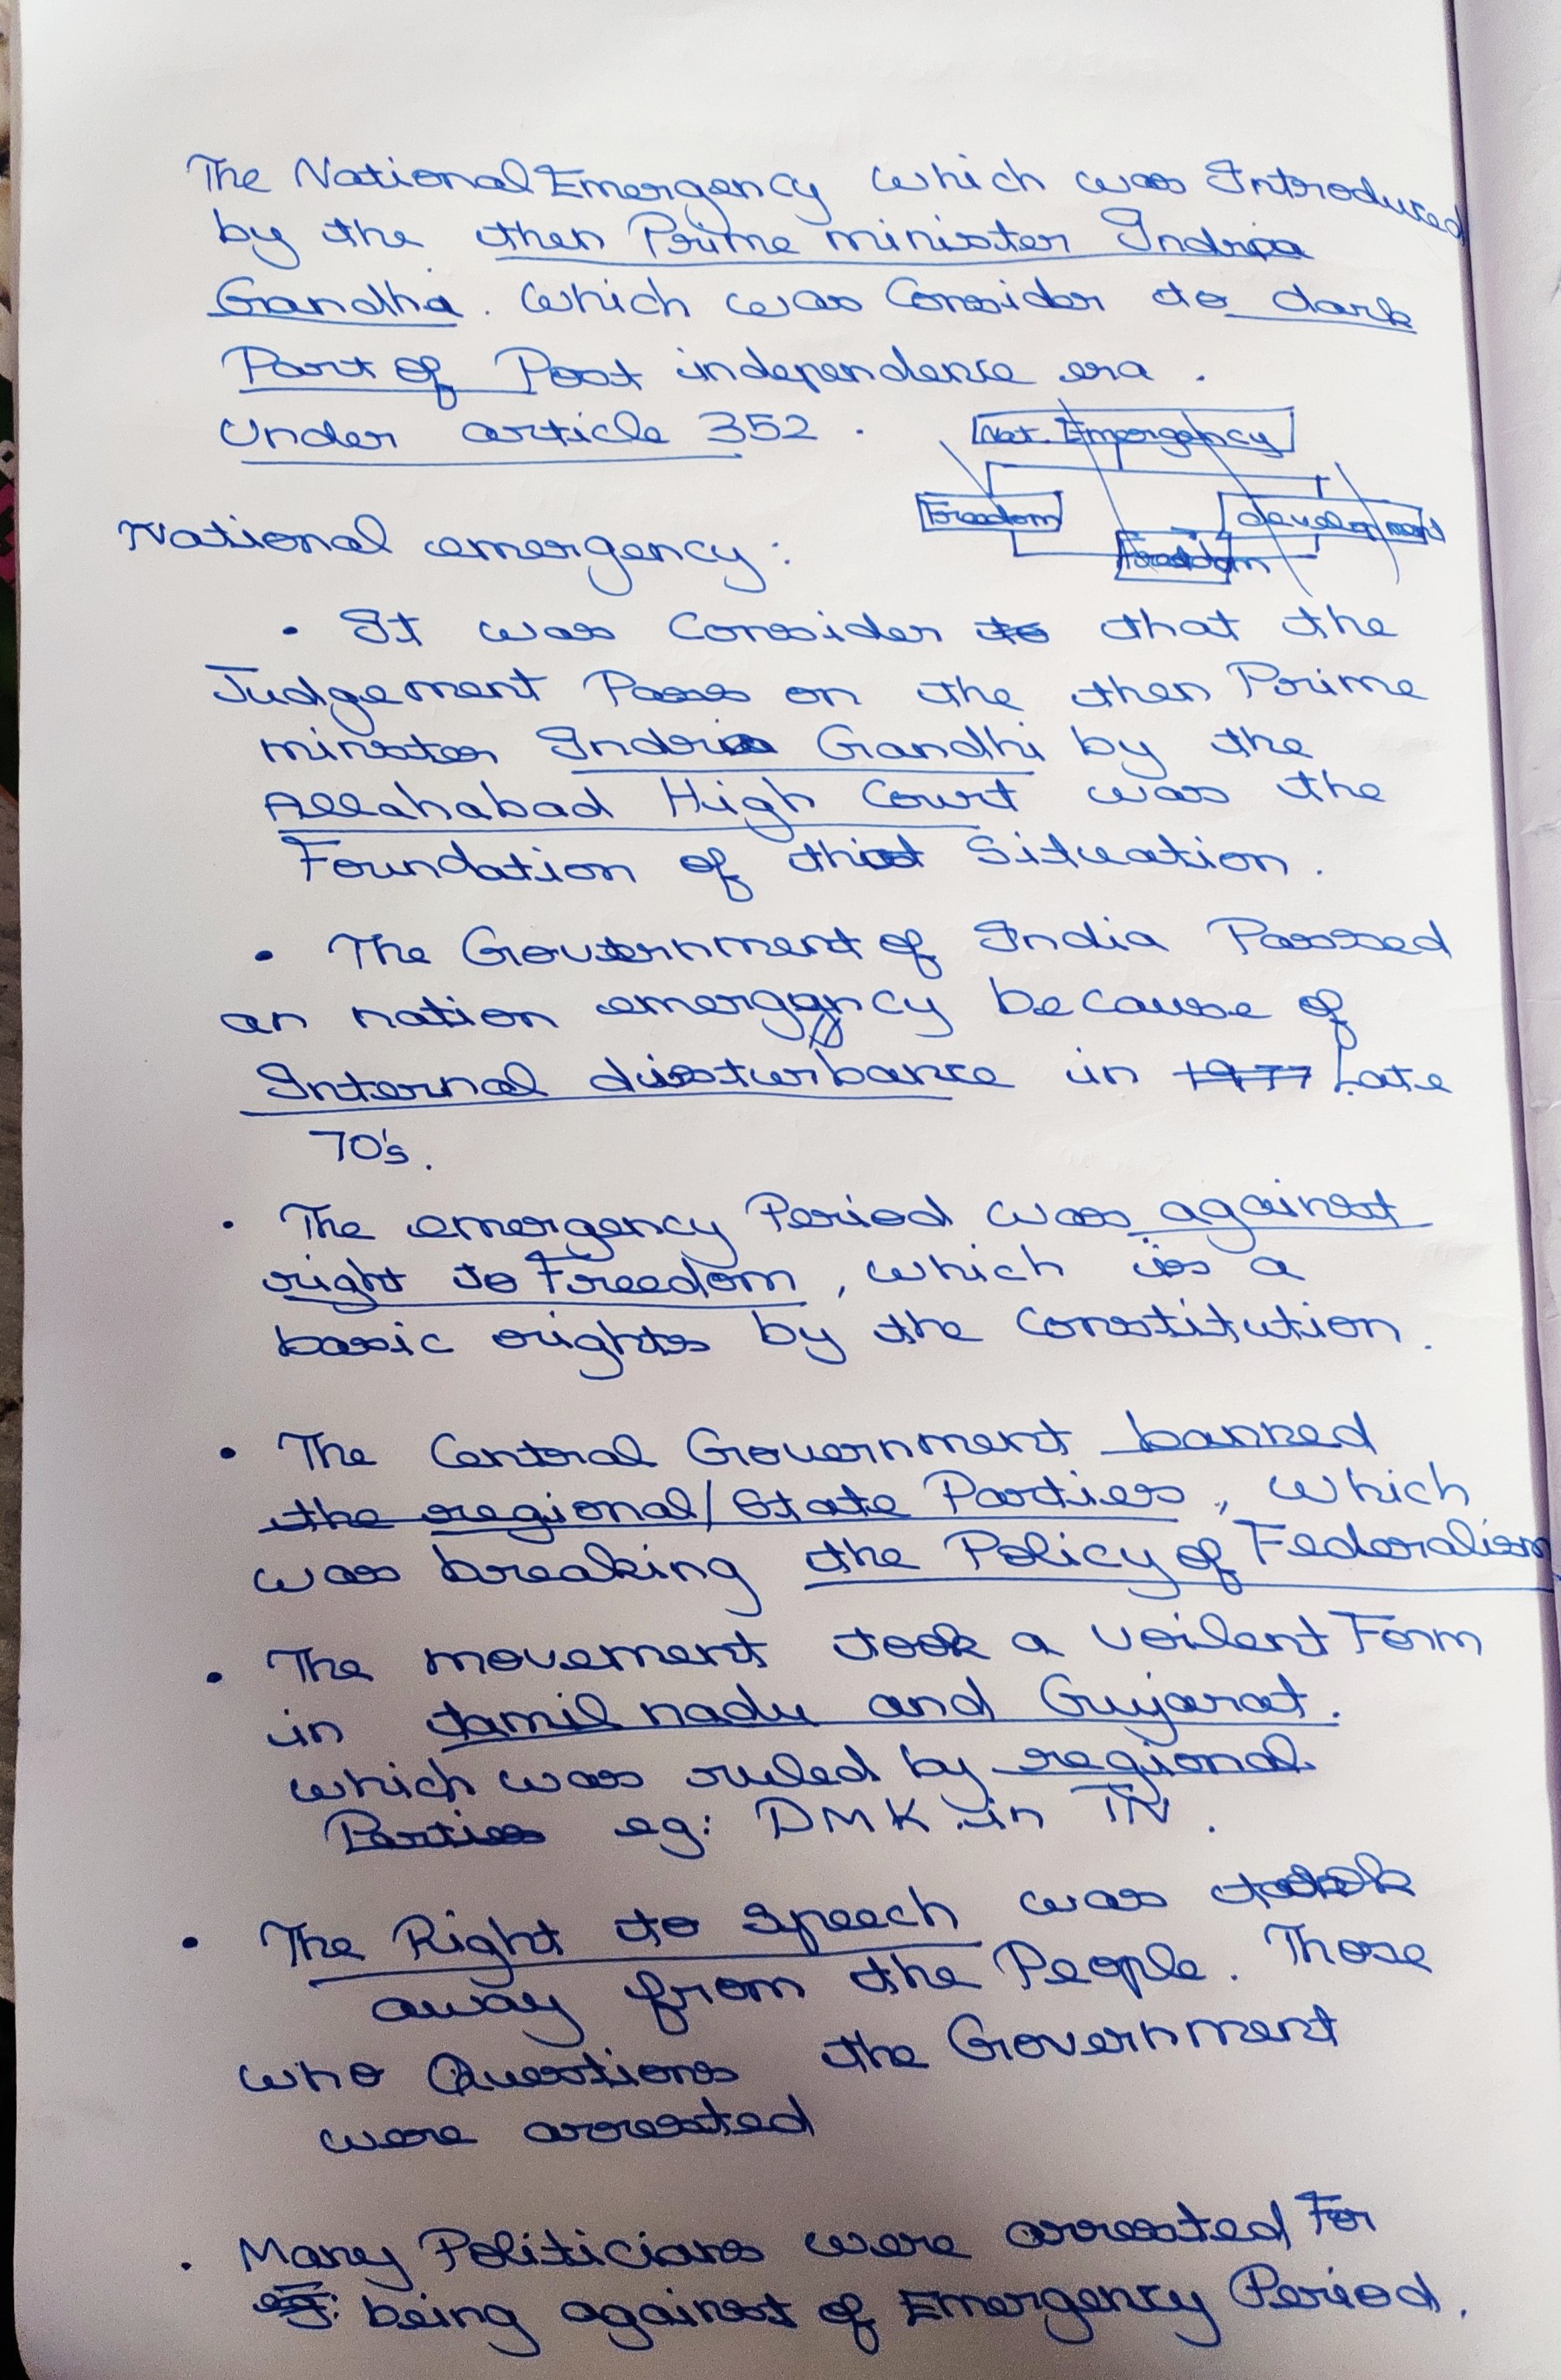 The National Emergency which was Introduced
by the then Prime minister Indria
Gandhi. Which was Consider to dark
Part of Post independence era.
Under article 352.
Nat. Emergency
Freedom
development
Freedom
National emergency:
• It was Consider to that the
Judgement Pass on the then Prime
minister Indria Gandhi by the
Allahabad High Court was the
Foundation of this Situation.
• The Government of India Passed
an nation emergency because of
Internal disturbance in 1977 Late
70's.
• The emergency Period was against
right to Freedom, which is a
basic rights by the Constitution.
• The Central Government banned
the regional/State Parties, which
was breaking the Policy of Federalism
• The movement took a voilent Form
in tamil nadu and Gujarat.
which was ruled by regional
Parties eg: DMK in TN.
• The Right to Speech was took
away from the People. Those
who Questions the Government
were arrested
• Many Politicians were arrested For
eg: being against of Emergency Period.